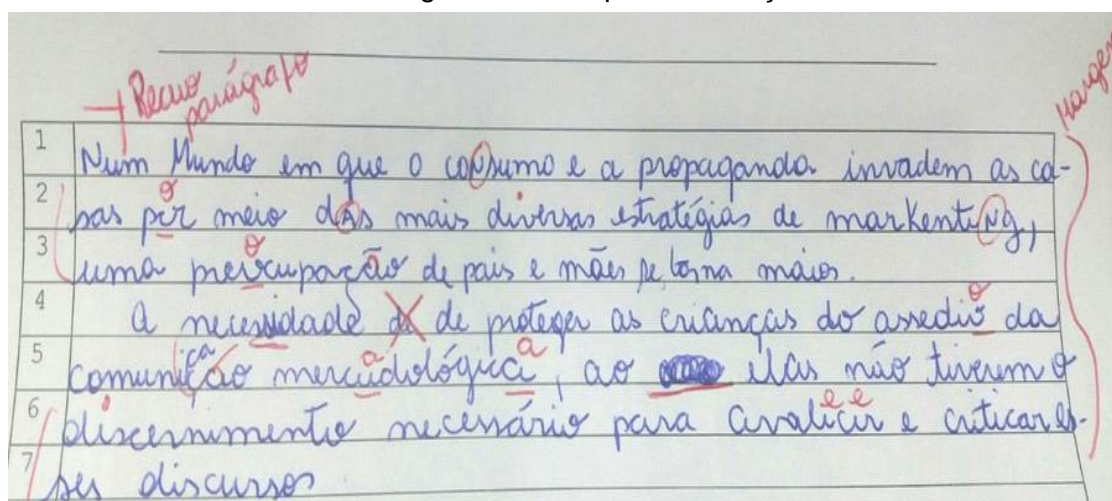 Recuo
parágrafo
Margem
1 Num Mundo em que o coNsumo e a propaganda invadem as ca-
2 sas por meio dAs mais diversas estratégias de markentiNg,
3 uma preocupação de pais e mães se torna maior.
4 A necessidade de de proteger as crianças do assedio da
5 comunição mercadológica, ao elas não tiverem o
6 discernimento necessário para avaliar e criticar es-
7 ses discursos